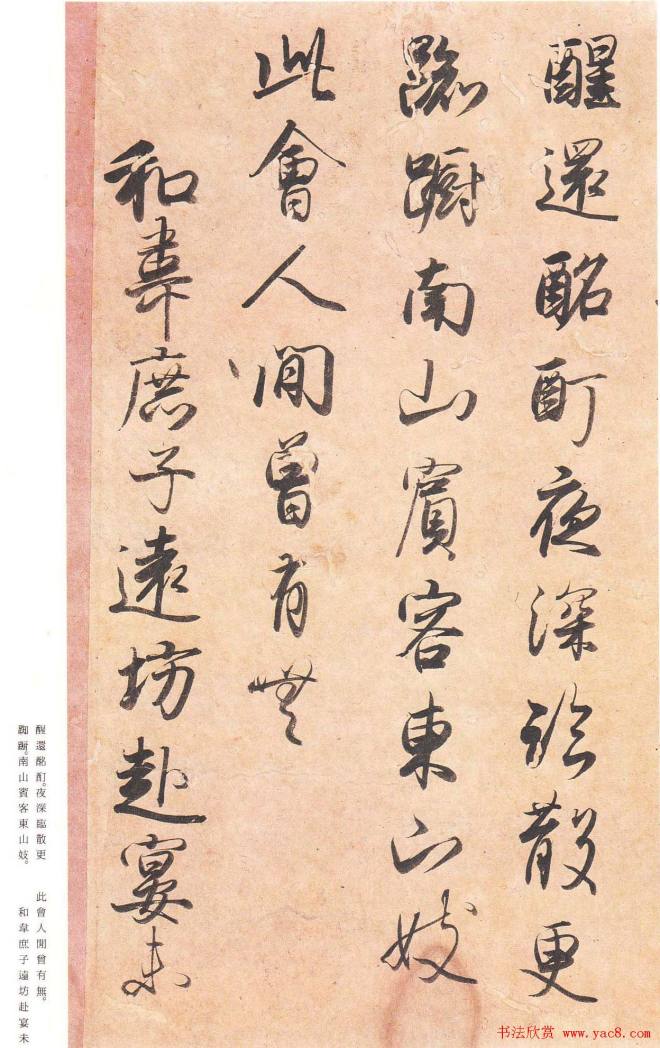 醒還酩酊夜深臨散更
踟躕南山賓客東山妓
此會人間曾有無
和韋庶子遠坊赴宴未
醒還酩酊。夜深臨散更
踟躕。南山賓客東山妓。
此會人間曾有無。
和韋庶子遠坊赴宴未
书法欣赏 www.yac8.com